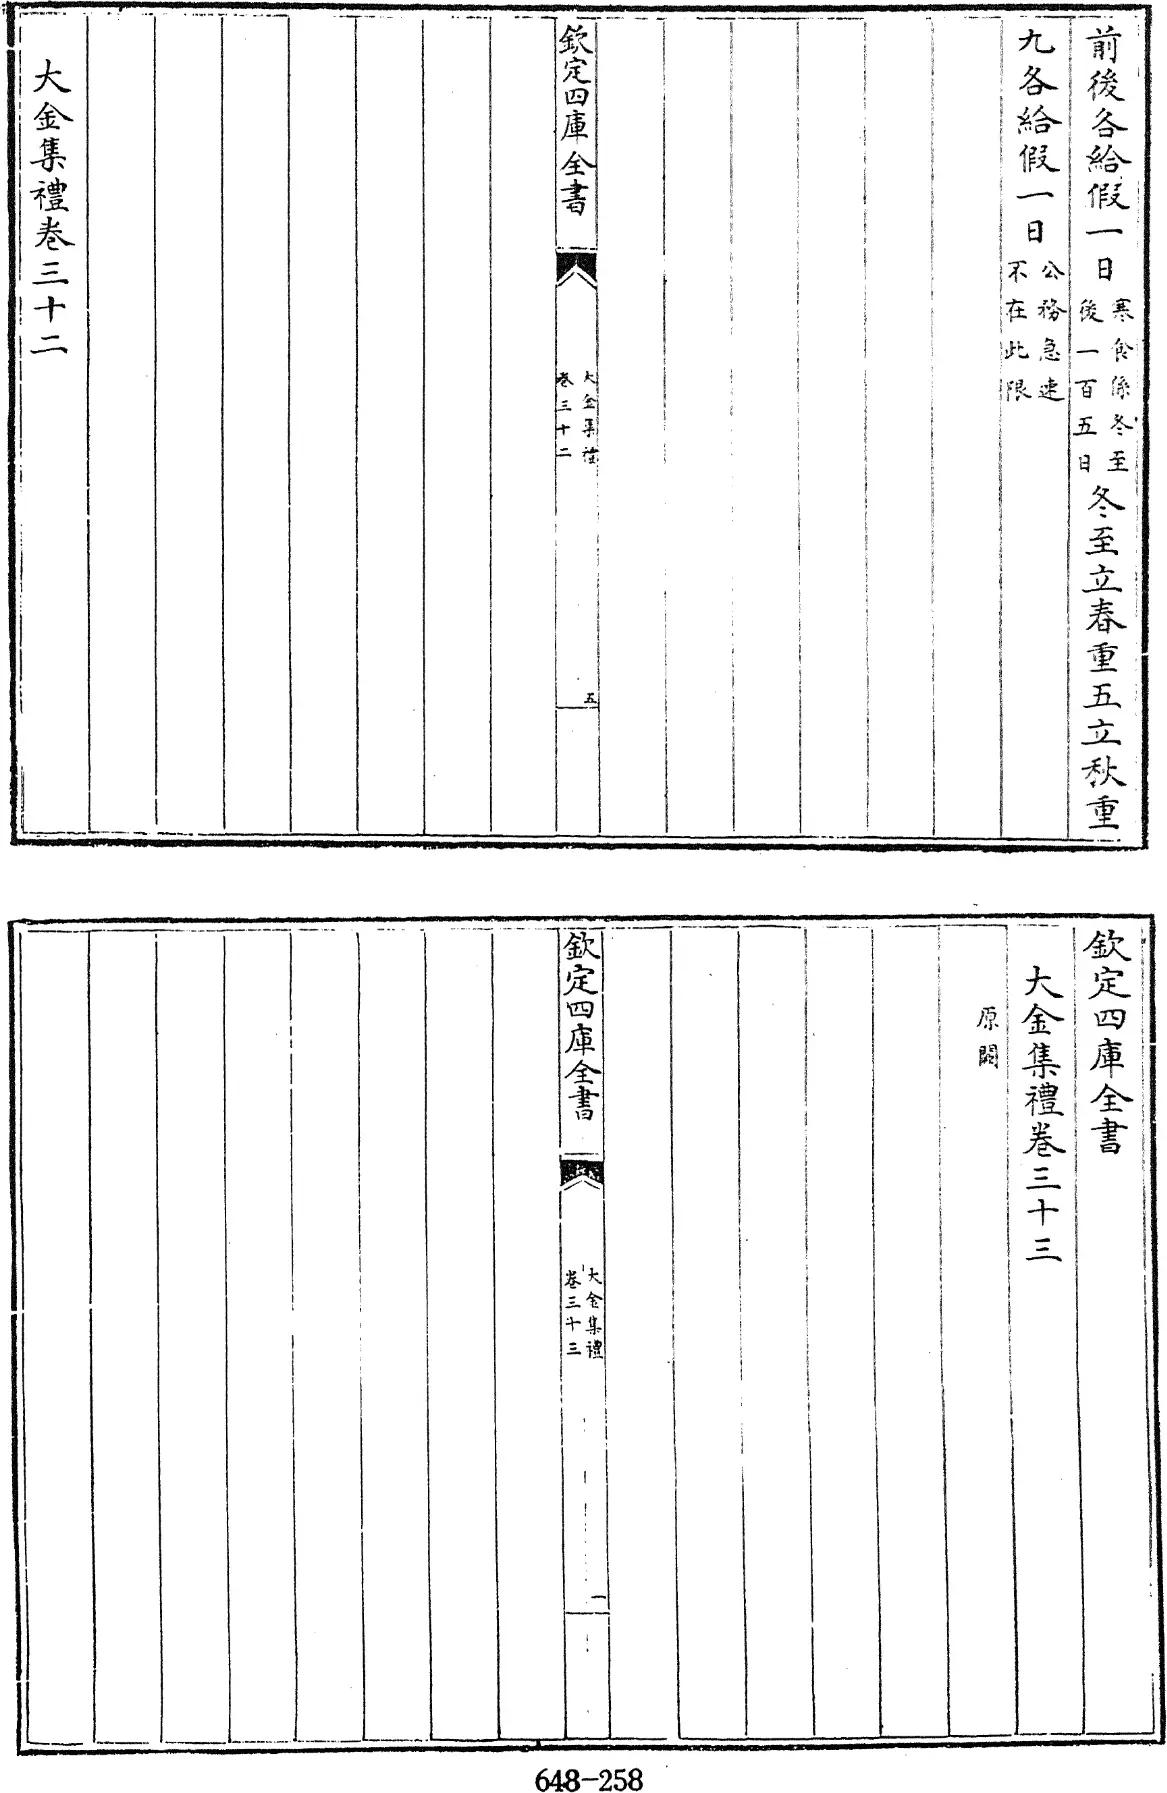 前後各給假一日寒食係冬至後一百五日冬至立春重五立秋重
九各給假一日公務急速不在此限
欽定四庫全書
大金集禮
卷三十二
五
大金集禮卷三十二
欽定四庫全書
大金集禮卷三十三
原闕
欽定四庫全書
大金集禮
卷三十三
一
648-258